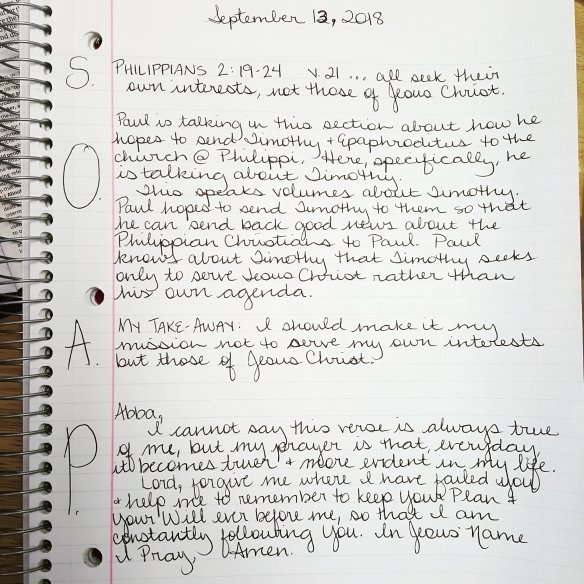 September 13, 2018
S. PHILIPPIANS 2:19-24 v. 21 ... all seek their
own interests, not those of Jesus Christ.
O. Paul is talking in this section about how he
hopes to send Timothy + Epaphroditus to the
church @ Philippi. Here, specifically, he
is talking about Timothy.
This speaks volumes about Timothy.
Paul hopes to send Timothy to them so that
he can send back good news about the
Philippian Christians to Paul. Paul
knows about Timothy that Timothy seeks
only to serve Jesus Christ rather than
his own agenda.
A. MY TAKE-AWAY: I should make it my
mission not to serve my own interests
but those of Jesus Christ.
P. Abba,
I cannot say this verse is always true
of me, but my prayer is that, everyday,
it becomes truer + more evident in my life.
Lord, forgive me where I have failed you
+ help me to remember to keep Your Plan +
Your Will ever before me, so that I am
constantly following You. In Jesus' Name
I Pray, Amen.